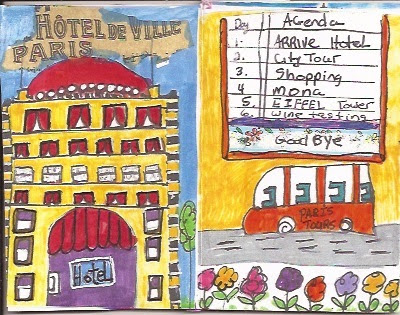 HÔTEL DE VILLE
PARIS
Hotel
Day Agenda
1. ARRIVE Hotel
2. City Tour
3. Shopping
4 mona
5. EIFFEL Tower
6. wine tasting
Good Bye
PARIS
TOURS